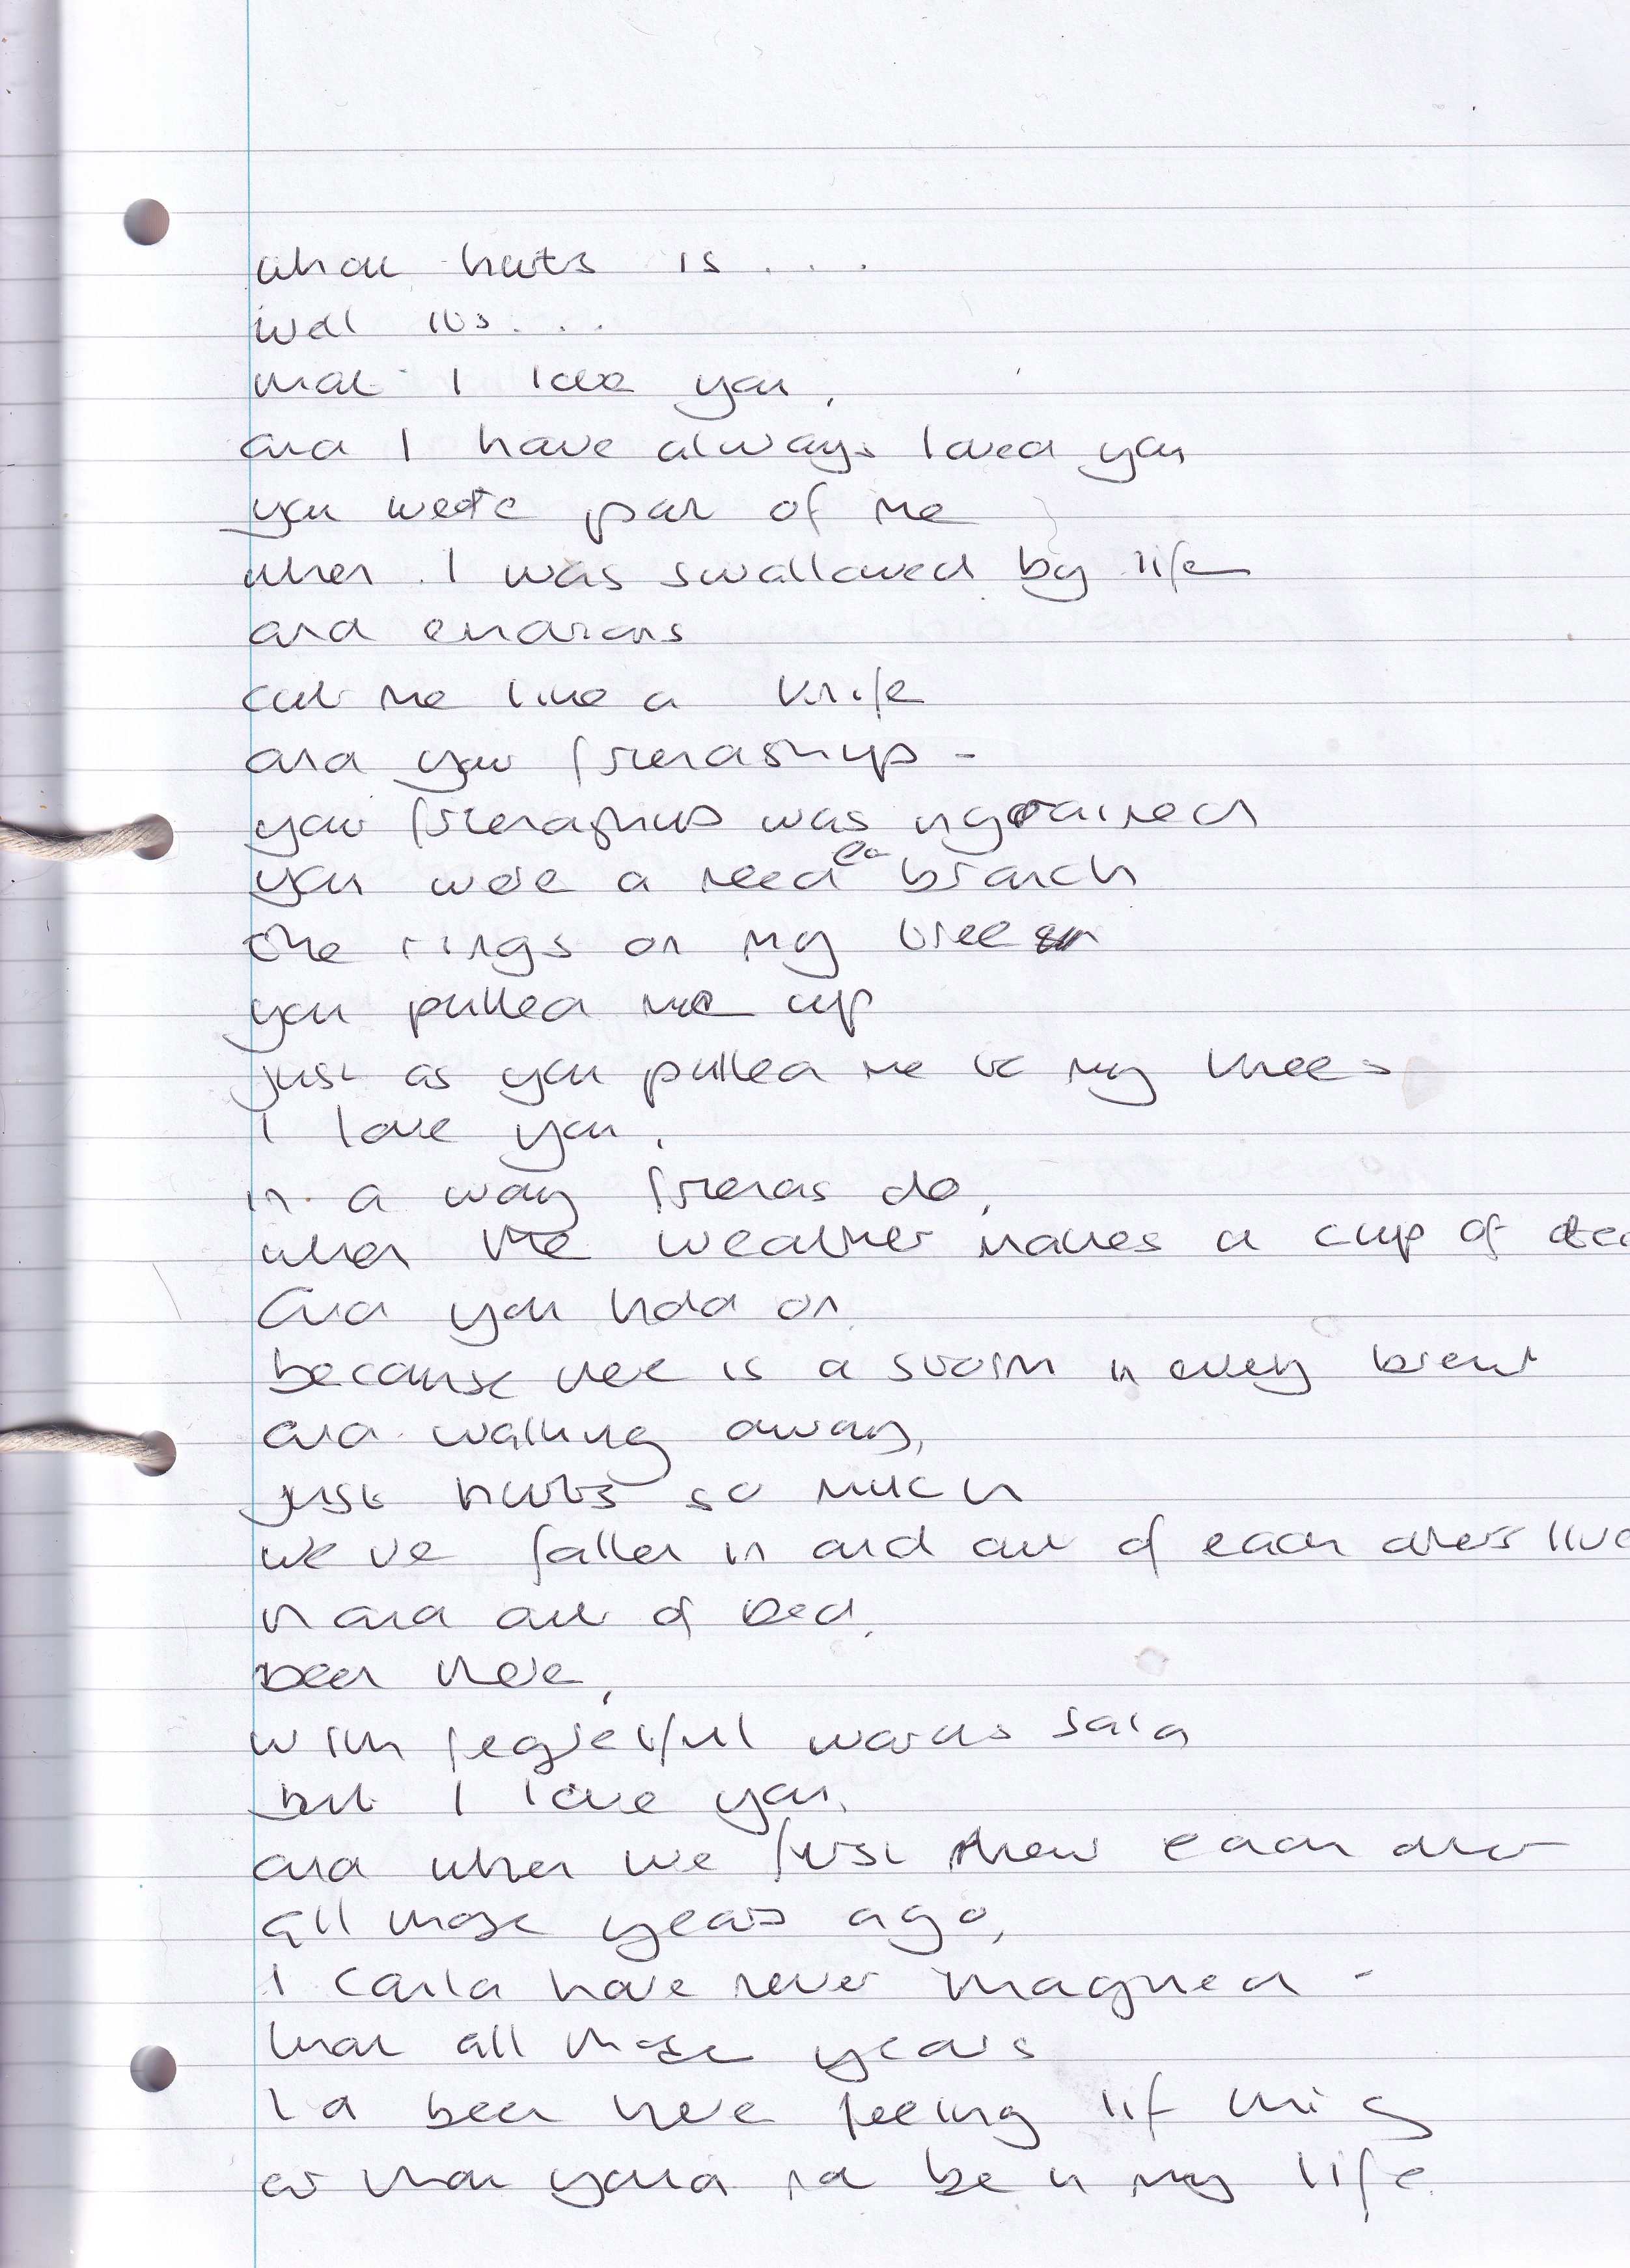 what hurts is . . .
well its . . .
that I love you,
and I have always loved you
you were part of me
when I was swallowed by life
and emotions
cut me like a knife
and your friendship -
your friendship was ingrained
you were a needed branch
the rings on my tree
you pulled me up
just as you pulled me to my knees
I love you,
in a way friends do,
when the weather makes a cup of tea
And you hold on
because there is a storm in every
and walking away,
just hurts so much
we've fallen in and out of each others
in and out of bed,
been there,
with regretful words said
but I love you,
and when we first knew each other
all those years ago,
I could have never imagined -
that all those years
I'd been here feeling
or that you'd be in my life